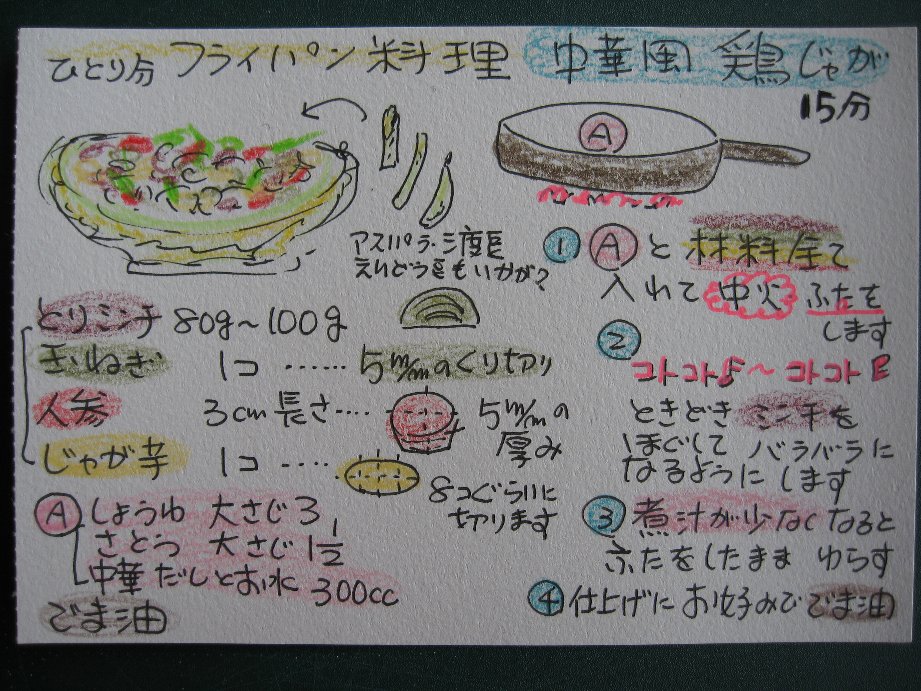 ひとり分 フライパン料理 中華風 鶏じゃが
15分
A
アスパラ・三度豆
えんどう豆もいかが?
とりミンチ 80g〜100g
玉ねぎ 1コ …… 5m/mのくし切り
人参 3cm長さ…. 5m/mの厚み
じゃが芋 1コ …. 8つぐらいに切ります
A しょうゆ 大さじ3
さとう 大さじ1 1/2
中華だしとお水 300cc
ごま油
① Aと材料全て
入れて 中火 ふたを
します
②
コトコト♪〜コトコト
ときどき ミンチを
ほぐして バラバラに
なるように します
③ 煮汁が少なくなると
ふたをしたまま ゆらす
④ 仕上げに お好みで ごま油